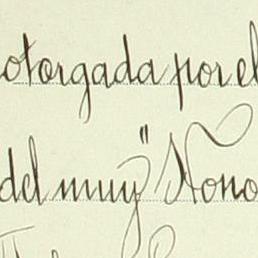 otorgada por el
del muy "Nono